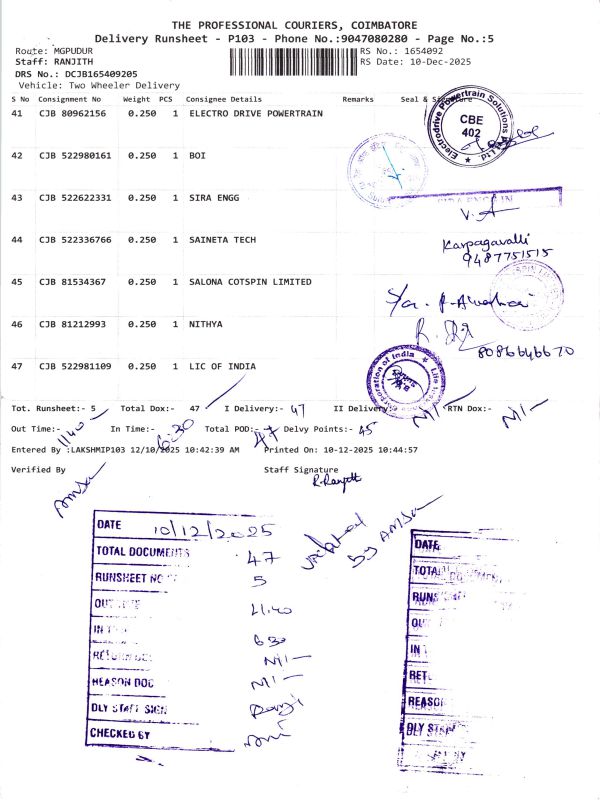 THE PROFESSIONAL COURIERS, COIMBATORE
Delivery Runsheet - P103 - Phone No.:9047080280 - Page No.:5
Route: MGPUDUR
RS No.: 1654092
Staff: RANJITH
RS Date: 10-Dec-2025
DRS No.: DCJB165409205
Vehicle: Two Wheeler Delivery
S No Consignment No Weight PCS Consignee Details Remarks Seal &
41 CJB 80962156 0.250 1 ELECTRO DRIVE POWERTRAIN
Electrodrive Powertrain Solutions
CBE
402
42 CJB 522980161 0.250 1 BOI
43 CJB 522622331 0.250 1 SIRA ENGG
V. A
44 CJB 522336766 0.250 1 SAINETA TECH
Karpagavalli
9487751515
45 CJB 81534367 0.250 1 SALONA COTSPIN LIMITED
46 CJB 81212993 0.250 1 NITHYA
8086646670
47 CJB 522981109 0.250 1 LIC OF INDIA
Tot. Runsheet:- 5 Total Dox:- 47 I Delivery:- 47 II Delivery:- Nil- RTN Dox:- Nil-
Out Time:- 11.40 In Time:- 6.30 Total POD:- 47 Delvy Points:- 45
Entered By :LAKSHMIP103 12/10/2025 10:42:39 AM Printed On: 10-12-2025 10:44:57
Verified By Staff Signature
DATE 10/12/2025
TOTAL DOCUMENTS 47
RUNSHEET NO 5
OUT TIME 11.40
IN 6.30
RETURN DOC Nil-
REASON DOC Nil-
DLY STAFF SIGN
CHECKED BY
by
DATE
TOTAL
RUNS
OUT
IN T
RET
REASO
DLY STAF